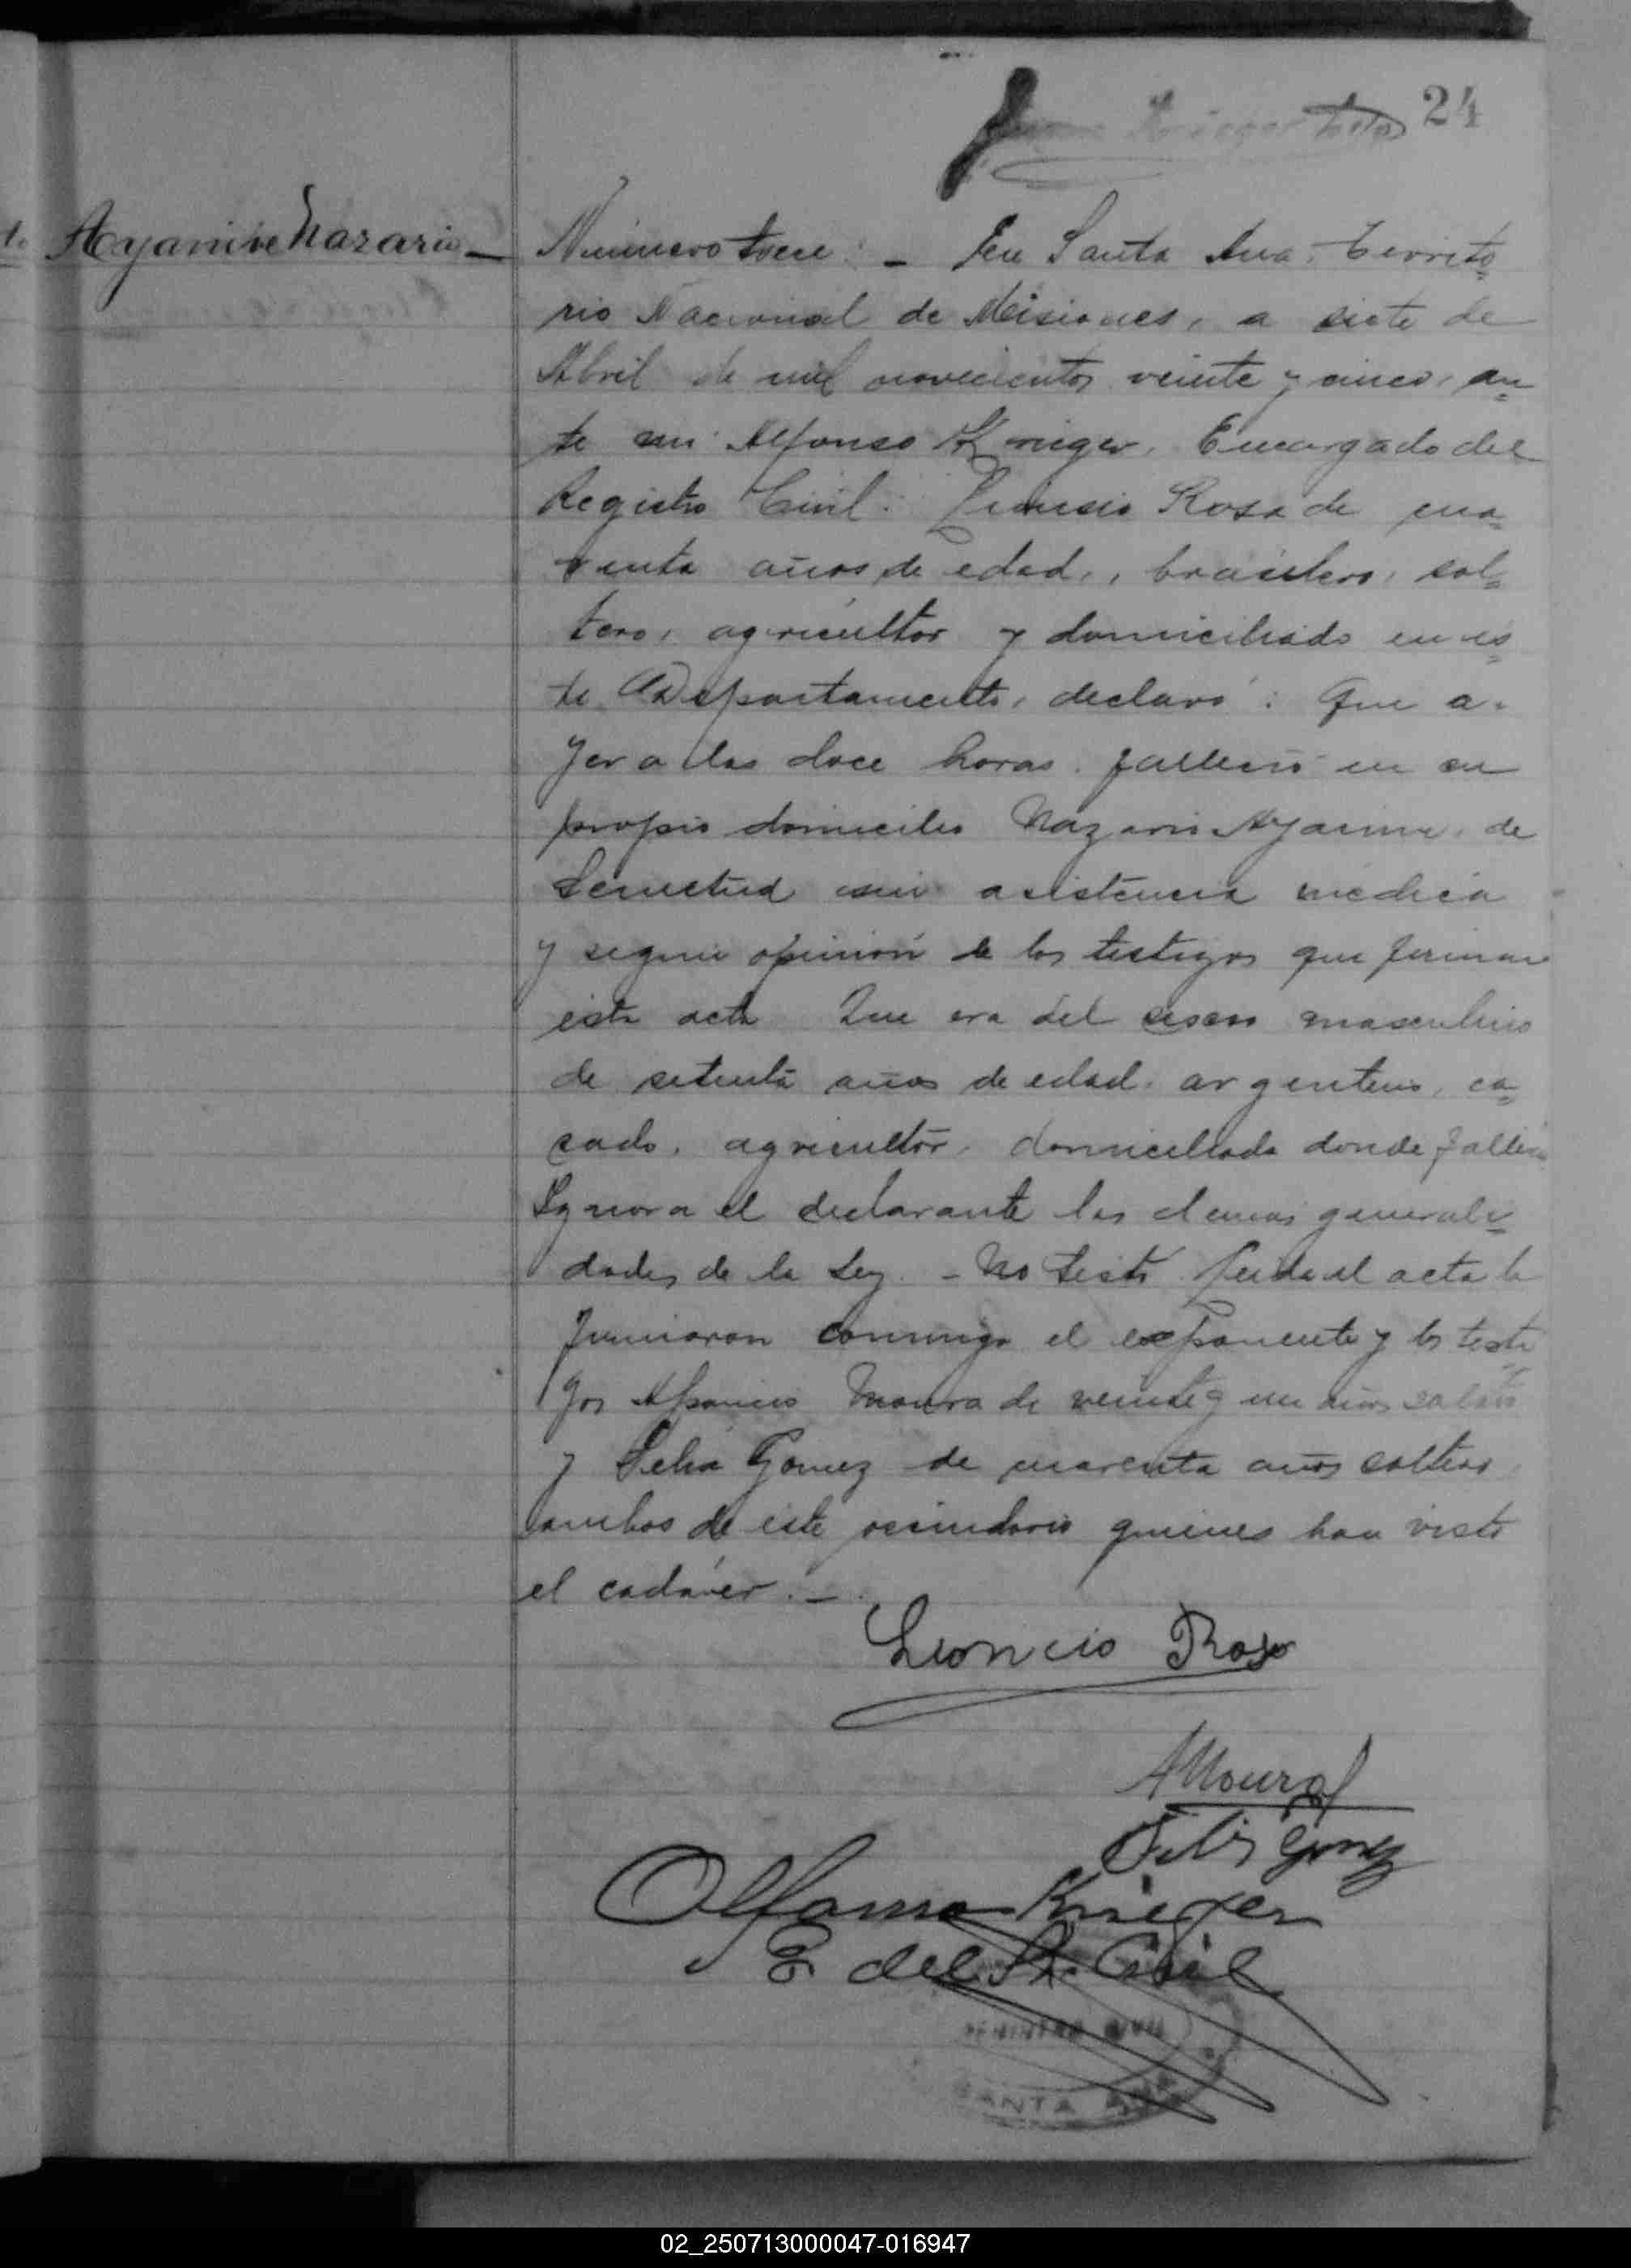 24
Ayamire Nazario -
Número trece: - En Santa Ana, Territo-
rio Nacional de Misiones, a siete de
Abril de mil novecientos veinte y cinco, an-
te mi Alfonso Krieger, Encargado del
Registro Civil: Leoncio Rosa de cua-
renta años de edad, brasilero, sol-
tero, agricultor y domiciliado en es-
te Departamento, declaró: Que a-
yer a las doce horas falleció en su
propio domicilio Nazario Ayamire, de
Senectud sin asistencia médica
y según opinión de los testigos que firman
esta acta Que era del sexo masculino
de setenta años de edad, argentino, ca-
sado, agricultor, domiciliado donde falleció
Ignora el declarante las demas generali-
dades de la Ley. - No testó. Leida el acta la
firmaron conmigo el exponente y los testi-
gos Aparicio Moura de veinte y un años
y Felix Gomez de cuarenta años soltero
ambos de este vecindario quienes han visto
el cadáver. -
Leoncio Rosa
AMoura
Felix Gomez
Alfonso Krieger
E. del R. Civil
REGISTRO CIVIL
SANTA ANA
02_250713000047-016947